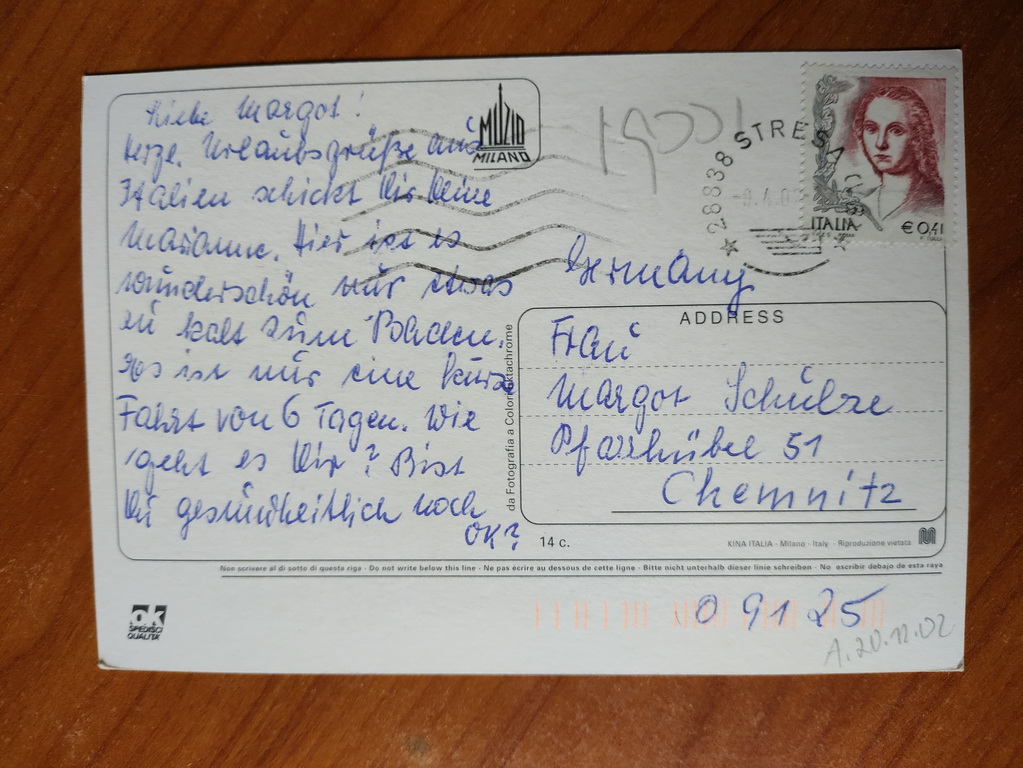 Liebe Margot!
Herze. Urlaubsgrüße aus
Italien schickt Dir Deine
Marianne. Hier ist es
wunderschön nur etwas
zu kalt zum Baden.
Es ist nur eine kurze
Fahrt von 6 Tagen. Wie
geht es Dir? Bist
Du gesundheitlich noch
OK?
MUZIO
MILANO
28838 STRESA
ITALIA
€ 0,41
Germany
ADDRESS
Frau
Margot Schulze
Pfarrhübel 51
Chemnitz
da Fotografia a Colori Ektachrome
14 c.
KINA ITALIA - Milano - Italy - Riproduzione vietata
Non scrivere al di sotto di questa riga - Do not write below this line - Ne pas écrire au dessous de cette ligne - Bitte nicht unterhalb dieser linie schreiben - No escribir debajo de esta raya
ok
SPEDISCI
QUALITA'
09125
A. 20.11.02